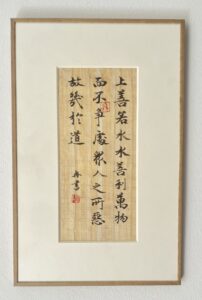 上善若水水善利萬物
而不爭處衆人之所惡
故幾於道
書